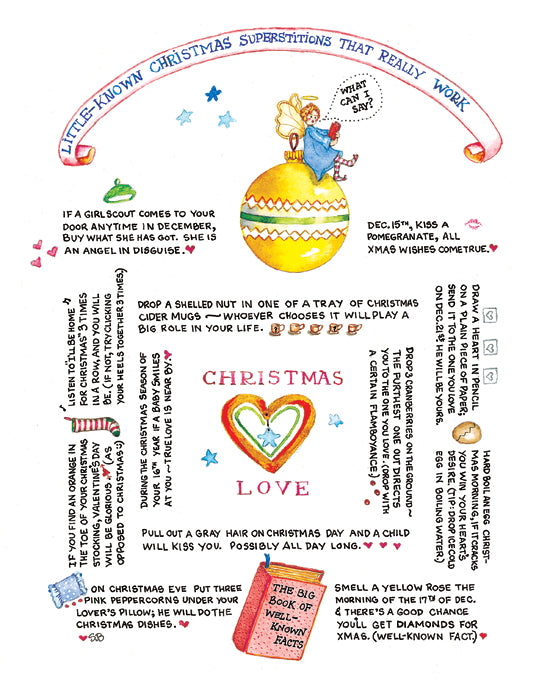 LITTLE-KNOWN CHRISTMAS SUPERSTITIONS THAT REALLY WORK
WHAT
CAN I
SAY?
IF A GIRLSCOUT COMES TO YOUR
DOOR ANYTIME IN DECEMBER,
BUY WHAT SHE HAS GOT. SHE IS
AN ANGEL IN DISGUISE.
DEC. 15TH, KISS A
POMEGRANATE, ALL
XMAS WISHES COMETRUE.
LISTEN TO "I'LL BE HOME
FOR CHRISTMAS" 3 TIMES
IN A ROW, AND YOU WILL
BE. (IF NOT, TRY CLICKING
YOUR HEELS TOGETHER 3 TIMES.)
DROP A SHELLED NUT IN ONE OF A TRAY OF CHRISTMAS
CIDER MUGS ~ WHOEVER CHOOSES IT WILL PLAY A
BIG ROLE IN YOUR LIFE.
DRAW A HEART IN PENCIL
ON A PLAIN PIECE OF PAPER;
SEND IT TO THE ONE YOU LOVE
ON DEC. 21ST HE WILL BE YOURS.
DURING THE CHRISTMAS SEASON OF
YOUR 16TH YEAR IF A BABY SMILES
AT YOU ~ TRUE LOVE IS NEAR BY.
CHRISTMAS
LOVE
DROP 3 CRANBERRIES ON THE GROUND ~
THE FURTHEST ONE OUT DIRECTS
YOU TO THE ONE YOU LOVE. (DROP WITH
A CERTAIN FLAMBOYANCE)
IF YOU FIND AN ORANGE IN
THE TOE OF YOUR CHRISTMAS
STOCKING, VALENTINE'S DAY
WILL BE GLORIOUS. (AS
OPPOSED TO CHRISTMAS?)
HARD BOIL AN EGG CHRIST-
MAS MORNING, IF IT CRACKS
YOU WIN YOUR HEART'S
DESIRE. (TIP: DROP ICE COLD
EGG IN BOILING WATER)
PULL OUT A GRAY HAIR ON CHRISTMAS DAY AND A CHILD
WILL KISS YOU. POSSIBLY ALL DAY LONG.
ON CHRISTMAS EVE PUT THREE
PINK PEPPERCORNS UNDER YOUR
LOVER'S PILLOW; HE WILL DO THE
CHRISTMAS DISHES.
THE BIG
BOOK OF
WELL-
KNOWN
FACTS
SMELL A YELLOW ROSE THE
MORNING OF THE 17TH OF DEC.
& THERE'S A GOOD CHANCE
YOU'LL GET DIAMONDS FOR
XMAS. (WELL-KNOWN FACT.)